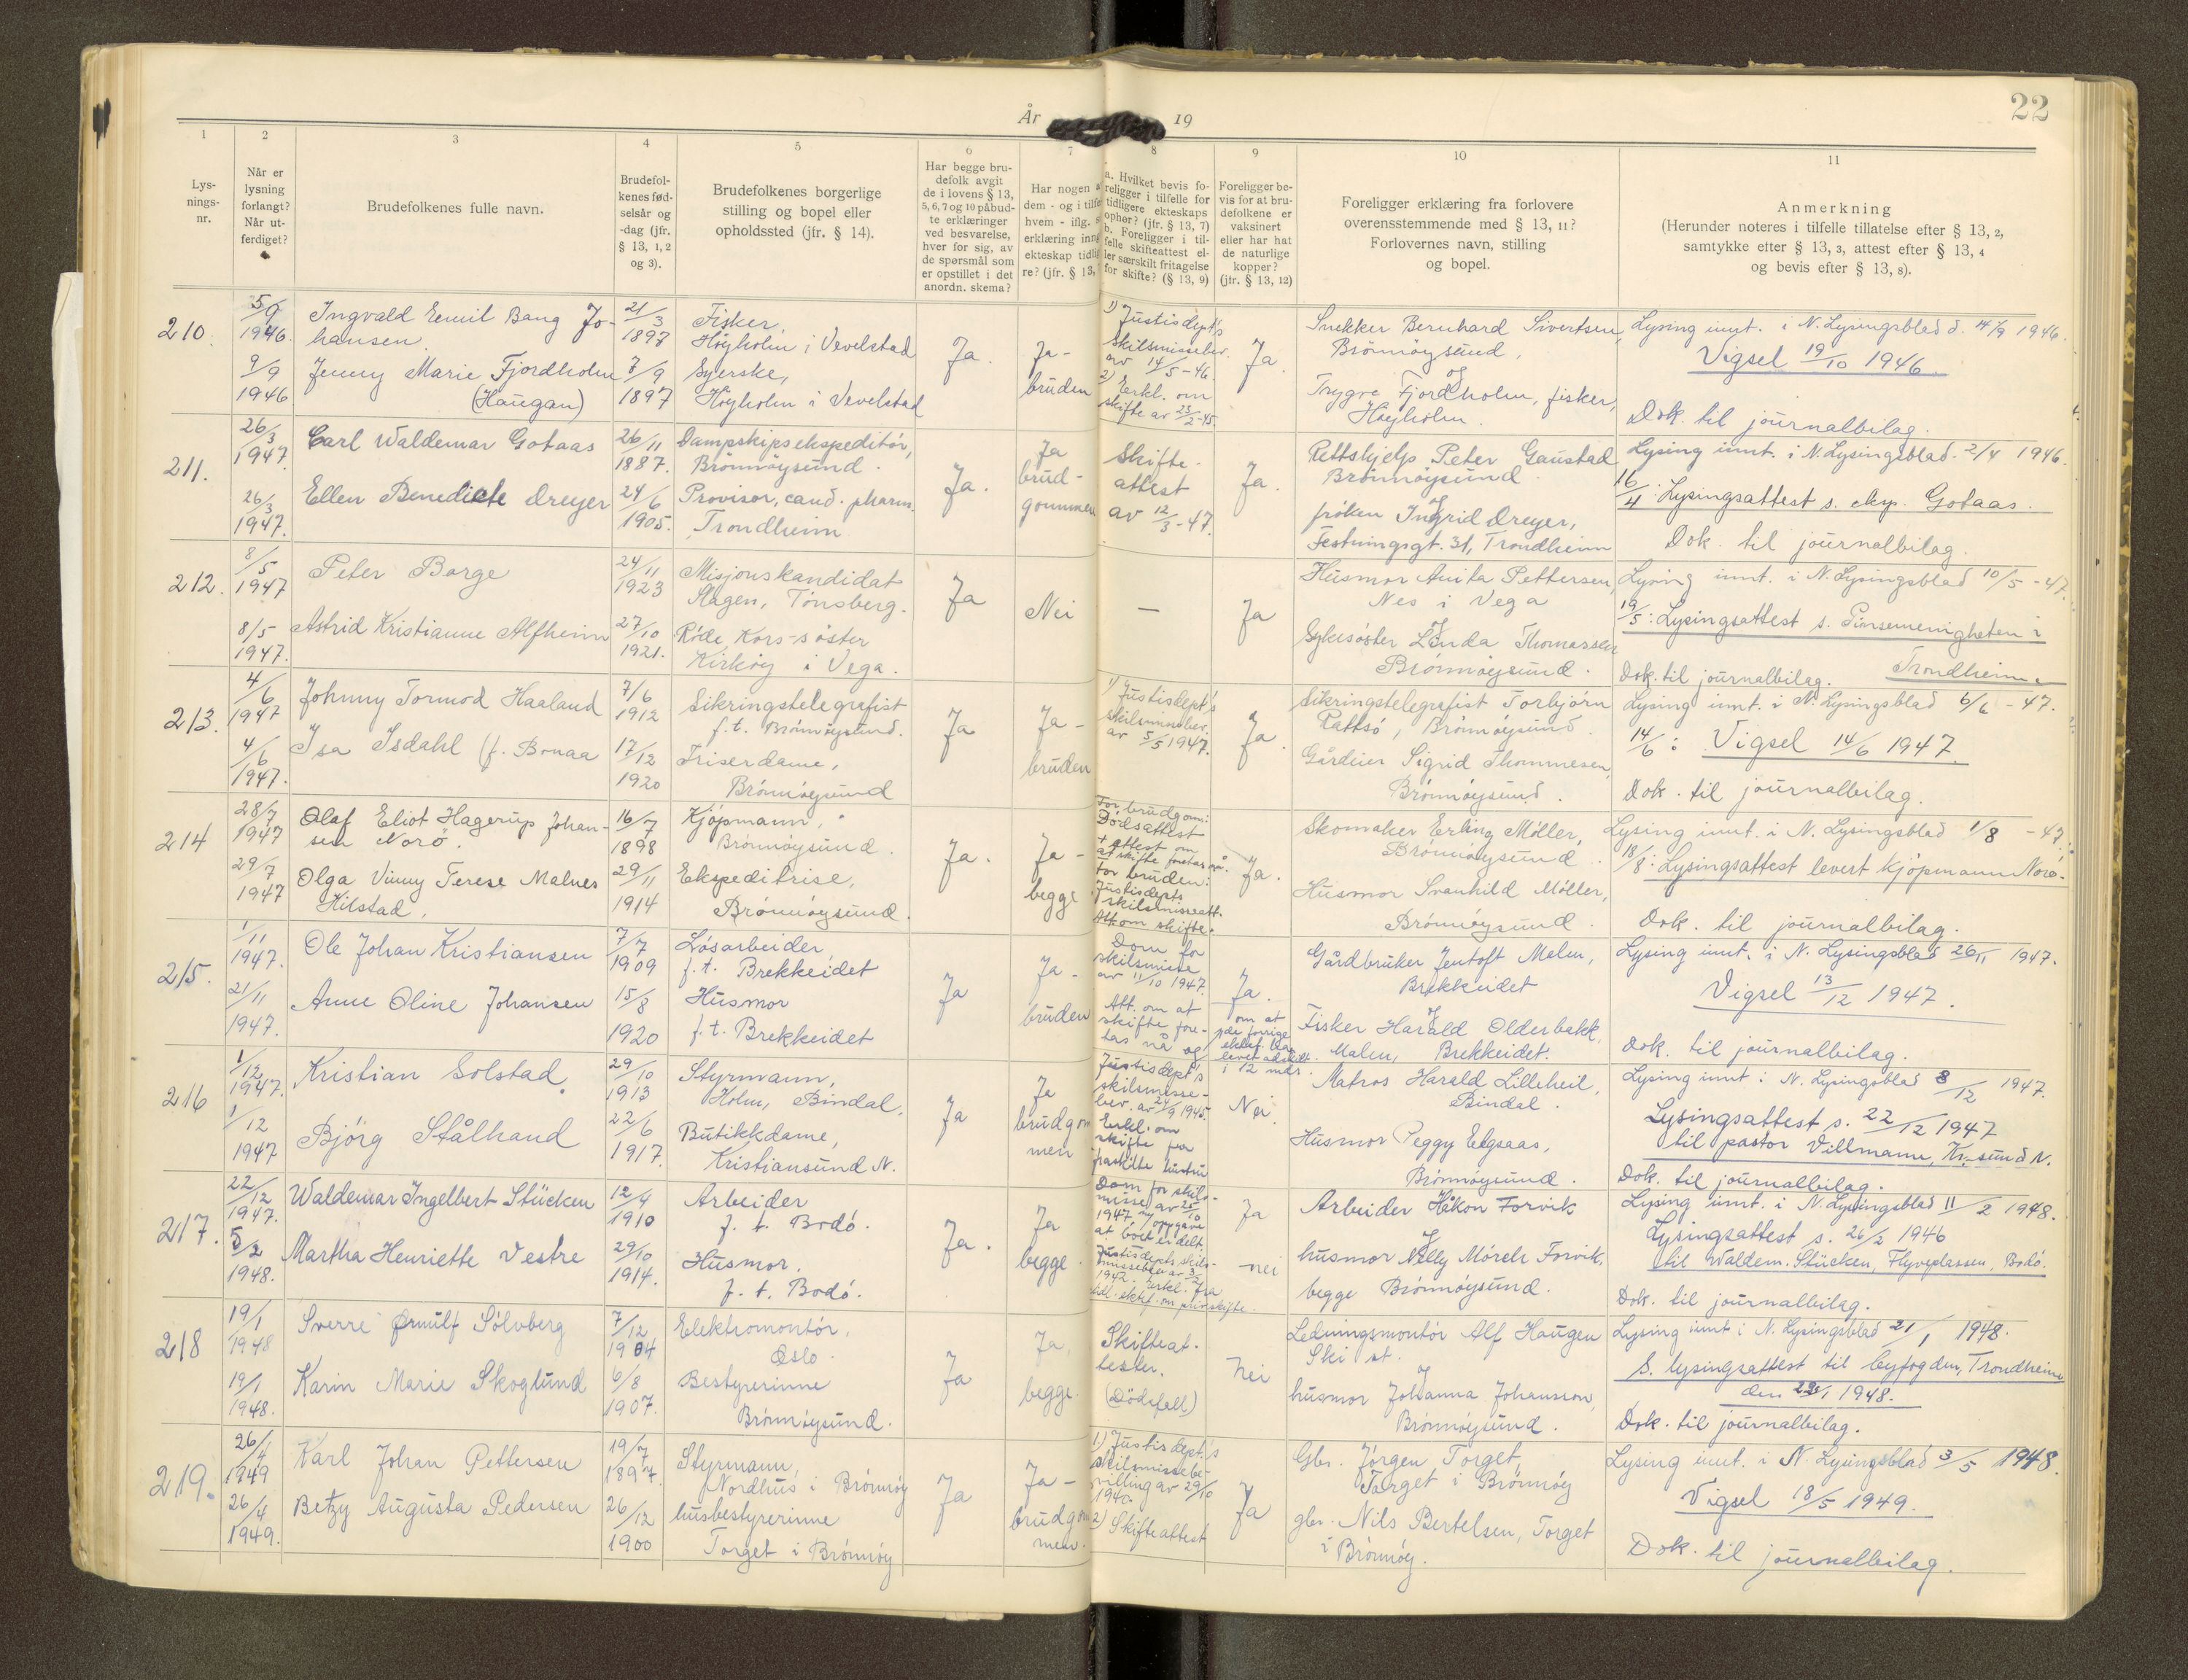 År 19
22
1
2
3
4
5
6
7
8
9
10
11
Lys-
nings-
nr.
Når er
lysning
forlangt?
Når ut-
ferdiget?
Brudefolkenes fulle navn.
Brudefol-
kenes fød-
selsår og
-dag (jfr.
§ 13, 1, 2
og 3).
Brudefolkenes borgerlige
stilling og bopel eller
opholdssted (jfr. § 14).
Har begge bru-
defolk avgit
de i lovens § 13,
5, 6, 7 og 10 påbud-
te erklæringer
ved besvarelse,
hver for sig, av
de spørsmål som
er opstillet i det
anordn. skema?
Har nogen a
dem - og i tilfe
hvem - iflg. s
erklæring inng
ekteskap tidlig
re? (jfr. § 13,
a. Hvilket bevis fo-
religger i tilfelle for
tidligere ekteskaps
ophør? (jfr. § 13, 7)
b. Foreligger i til-
felle skifteattest el-
ler særskilt fritagelse
for skifte? (§ 13, 9)
Foreligger be-
vis for at bru-
defolkene er
vaksinert
eller har hat
de naturlige
kopper?
(jfr. § 13, 12)
Foreligger erklæring fra forlovere
overensstemmende med § 13, 11?
Forlovernes navn, stilling
og bopel.
Anmerkning
(Herunder noteres i tilfelle tillatelse efter § 13, 2,
samtykke efter § 13, 3, attest efter § 13, 4
og bevis efter § 13, 8).
210.
5/9
1946.
9/9
1946
Ingvald Emil Bang Jo-
hansen.
Jenny Marie Fjordholm
(Haugan)
21/3
1897
7/9
1897
Fisker,
Høyholm i Vevelstad
Syerske,
Høyholm i Vevelstad
Ja.
Ja-
bruden
1) Justisdept's
skilsmissebev.
av 14/5-46.
2) Erkl. om
skifte av 25/2-45.
Ja
Snekker Bernhard Sivertsen,
Brönnöysund,
og
Trygve Fjordholm, fisker,
Høyholm.
Lysing innt. i N. Lysingsblad d. 14/9 1946.
Vigsel 19/10 1946.
Dok. til journalbilag.
211.
26/3
1947.
26/3
1947.
Carl Waldemar Gotaas
Ellen Benedicte Dreyer
26/11
1887.
24/6
1905.
Dampskipsekspeditör,
Brönnöysund.
Provisor, cand. pharm.
Trondheim
Ja.
Ja
brud-
gommen
Skifte-
attest
av 12/3-47.
Ja.
Rettshjelp Peter Gaustad
Brönnöysund.
og
fröken Ingrid Dreyer,
Festningsgt. 31, Trondheim
Lysing innt. i N. Lysingsblad. 2/4 1946.
16/4: Lysingsattest s. eksp. Gotaas.
Dok. til journalbilag.
212.
8/5
1947
8/5
1947.
Peter Borge
Astrid Kristianne Alfheim
24/11
1923
27/10
1921.
Misjonskandidat
Slagen, Tönsberg.
Röde Kors-söster
Kirköy i Vega.
Ja
Nei
—
Ja
Husmor Anita Pettersen,
Nes i Vega
og
Sykesöster Linda Thomassen
Brönnöysund.
Lysing innt. i N. Lysingsblad 10/5-47.
19/5: Lysingsattest s. Pinsemenigheten i
Trondheim.
Dok. til journalbilag.
213.
4/6
1947
4/6
1947.
Johnny Tormod Haaland
Isa Isdahl (f. Bonaa
7/6
1912
17/12
1920
Sikringstelegrafist
f.t. Brönnöysund.
Friserdame,
Brönnöysund
Ja
Ja-
bruden
1) Justisdept's
skilsmissebev.
av 5/5 1947.
Ja.
Sikringstelegrafist Torbjörn
Rattsö, Brönnöysund.
Gårdeier Sigrid Thommesen,
Brönnöysund.
Lysing innt. i N. Lysingsblad 6/6-47.
14/6: Vigsel 14/6 1947.
Dok. til journalbilag.
214
28/7
1947
29/7
1947
Olaf Eliot Hagerup Johan-
sen Norö.
Olga Vinny Terese Malnes
Hilstad,
16/7
1898
29/11
1914
Kjöpmann,
Brönnöysund.
Ekspeditrise,
Brönnöysund.
Ja.
Ja-
begge
For brudgom:
Dödsattest
+ attest om
at skifte foretas nå.
For bruden:
Justisdepts
skilsmisseatt.
Att om skifte.
Ja.
Skomaker Erling Möller,
Brönnöysund.
Husmor Svanhild Möller,
Brönnöysund.
Lysing innt. i N. Lysingsblad 1/8 -47.
18/8: Lysingsattest levert Kjöpmann Norö.
Dok. til journalbilag.
215.
1/11
1947.
21/11
1947.
Ole Johan Kristiansen
Anne Oline Johansen
7/7
1909
15/8
1920
Lösarbeider
f.t. Brekkeidet
Husmor
f.t. Brekkeidet
Ja
Ja-
bruden
Dom for
skilsmisse
av 11/10 1947.
Att. om at
skifte fore-
tas nå og
Ja.
om at
levet adskilt
i 12 mdr.
Gårdbruker Jentoft Melen,
Brekkeidet
og
Fisker Harald Olderbakk,
Malen, Brekkeidet.
Lysing innt. i N. Lysingsblad 26/11 1947.
Vigsel 13/12 1947.
Dok. til journalbilag.
216
1/12
1947.
1/12
1947
Kristian Solstad.
Bjørg Stålhand
29/10
1913
22/6
1917.
Styrmann,
Holm, Bindal.
Butikkdame,
Kristiansund N.
Ja
Ja
brudgom
men
Justisdept's
skilsmisse-
bev. av 24/9 1945.
Erkl. om
skifte fra
fraskilte hustru
Nei.
Matros Harald Lilleheil,
Bindal.
Husmor Peggy Elgsaas,
Brönnöysund.
Lysing innt i N. Lysingsblad 8/12 1947.
Lysingsattest s. 22/12 1947
til pastor Villmann, Kr.sund N.
Dok. til journalbilag.
217.
22/12
1947.
5/2
1948.
Waldemar Ingelbert Stücken
Martha Henriette Vestre
12/4
1910
29/10
1914.
Arbeider
f.t. Bodö.
Husmor.
f.t. Bodö.
Ja.
Ja
begge.
Dom for skils-
misse av 25/10
1947 og oppgave
at boet er delt.
Justisdepts skils-
missebev av 3/2
1942. Erkl. fra
tidl. ektef. om priv. skifte.
Ja
nei
Arbeider Håkon Forvik
og
husmor Nelly Mörch Forvik,
begge Brönnöysund.
Lysing innt. i N. Lysingsblad 11/2 1948.
Lysingsattest s. 26/2 1946
til Waldem. Stücken, Flyveplassen, Bodö.
Dok. til journalbilag.
218
19/1
1948
19/1
1948.
Sverre Ørnulf Sölvberg
Karin Marie Skoglund
7/12
1904
6/8
1907.
Elektromontör,
Oslo.
Bestyrerinne
Brönnöysund.
Ja
Ja,
begge.
Skifteat-
tester.
(Dödsfall)
Nei
Ledningsmontör Alf Haugen
Ski st.
og
husmor Johanna Johansson,
Brönnöysund.
Lysing innt i N. Lysingsblad 21/1 1948.
S. lysingsattest til byfogden, Trondheim
den 1948.
Dok. til journalbilag.
219.
26/4
1949
26/4
1949.
Karl Johan Pettersen
Betzy Augusta Pedersen
19/7
1897.
26/12
1900
Styrmann,
Nordhus i Brönnöy
husbestyrerinne
Torget i Brönnöy
Ja
Ja-
brudgom
men.
1) Justisdept.'s
skilsmissebe-
villing av 29/10
1940.
2) Skifteattest
Ja
Gbr. Jörgen Torget,
Torget i Brönnöy
gbr. Nils Bertelsen, Torget
i Brönnöy.
Lysing innt. i N. Lysingsblad 3/5 1948.
Vigsel 18/5 1949.
Dok. til journalbilag.